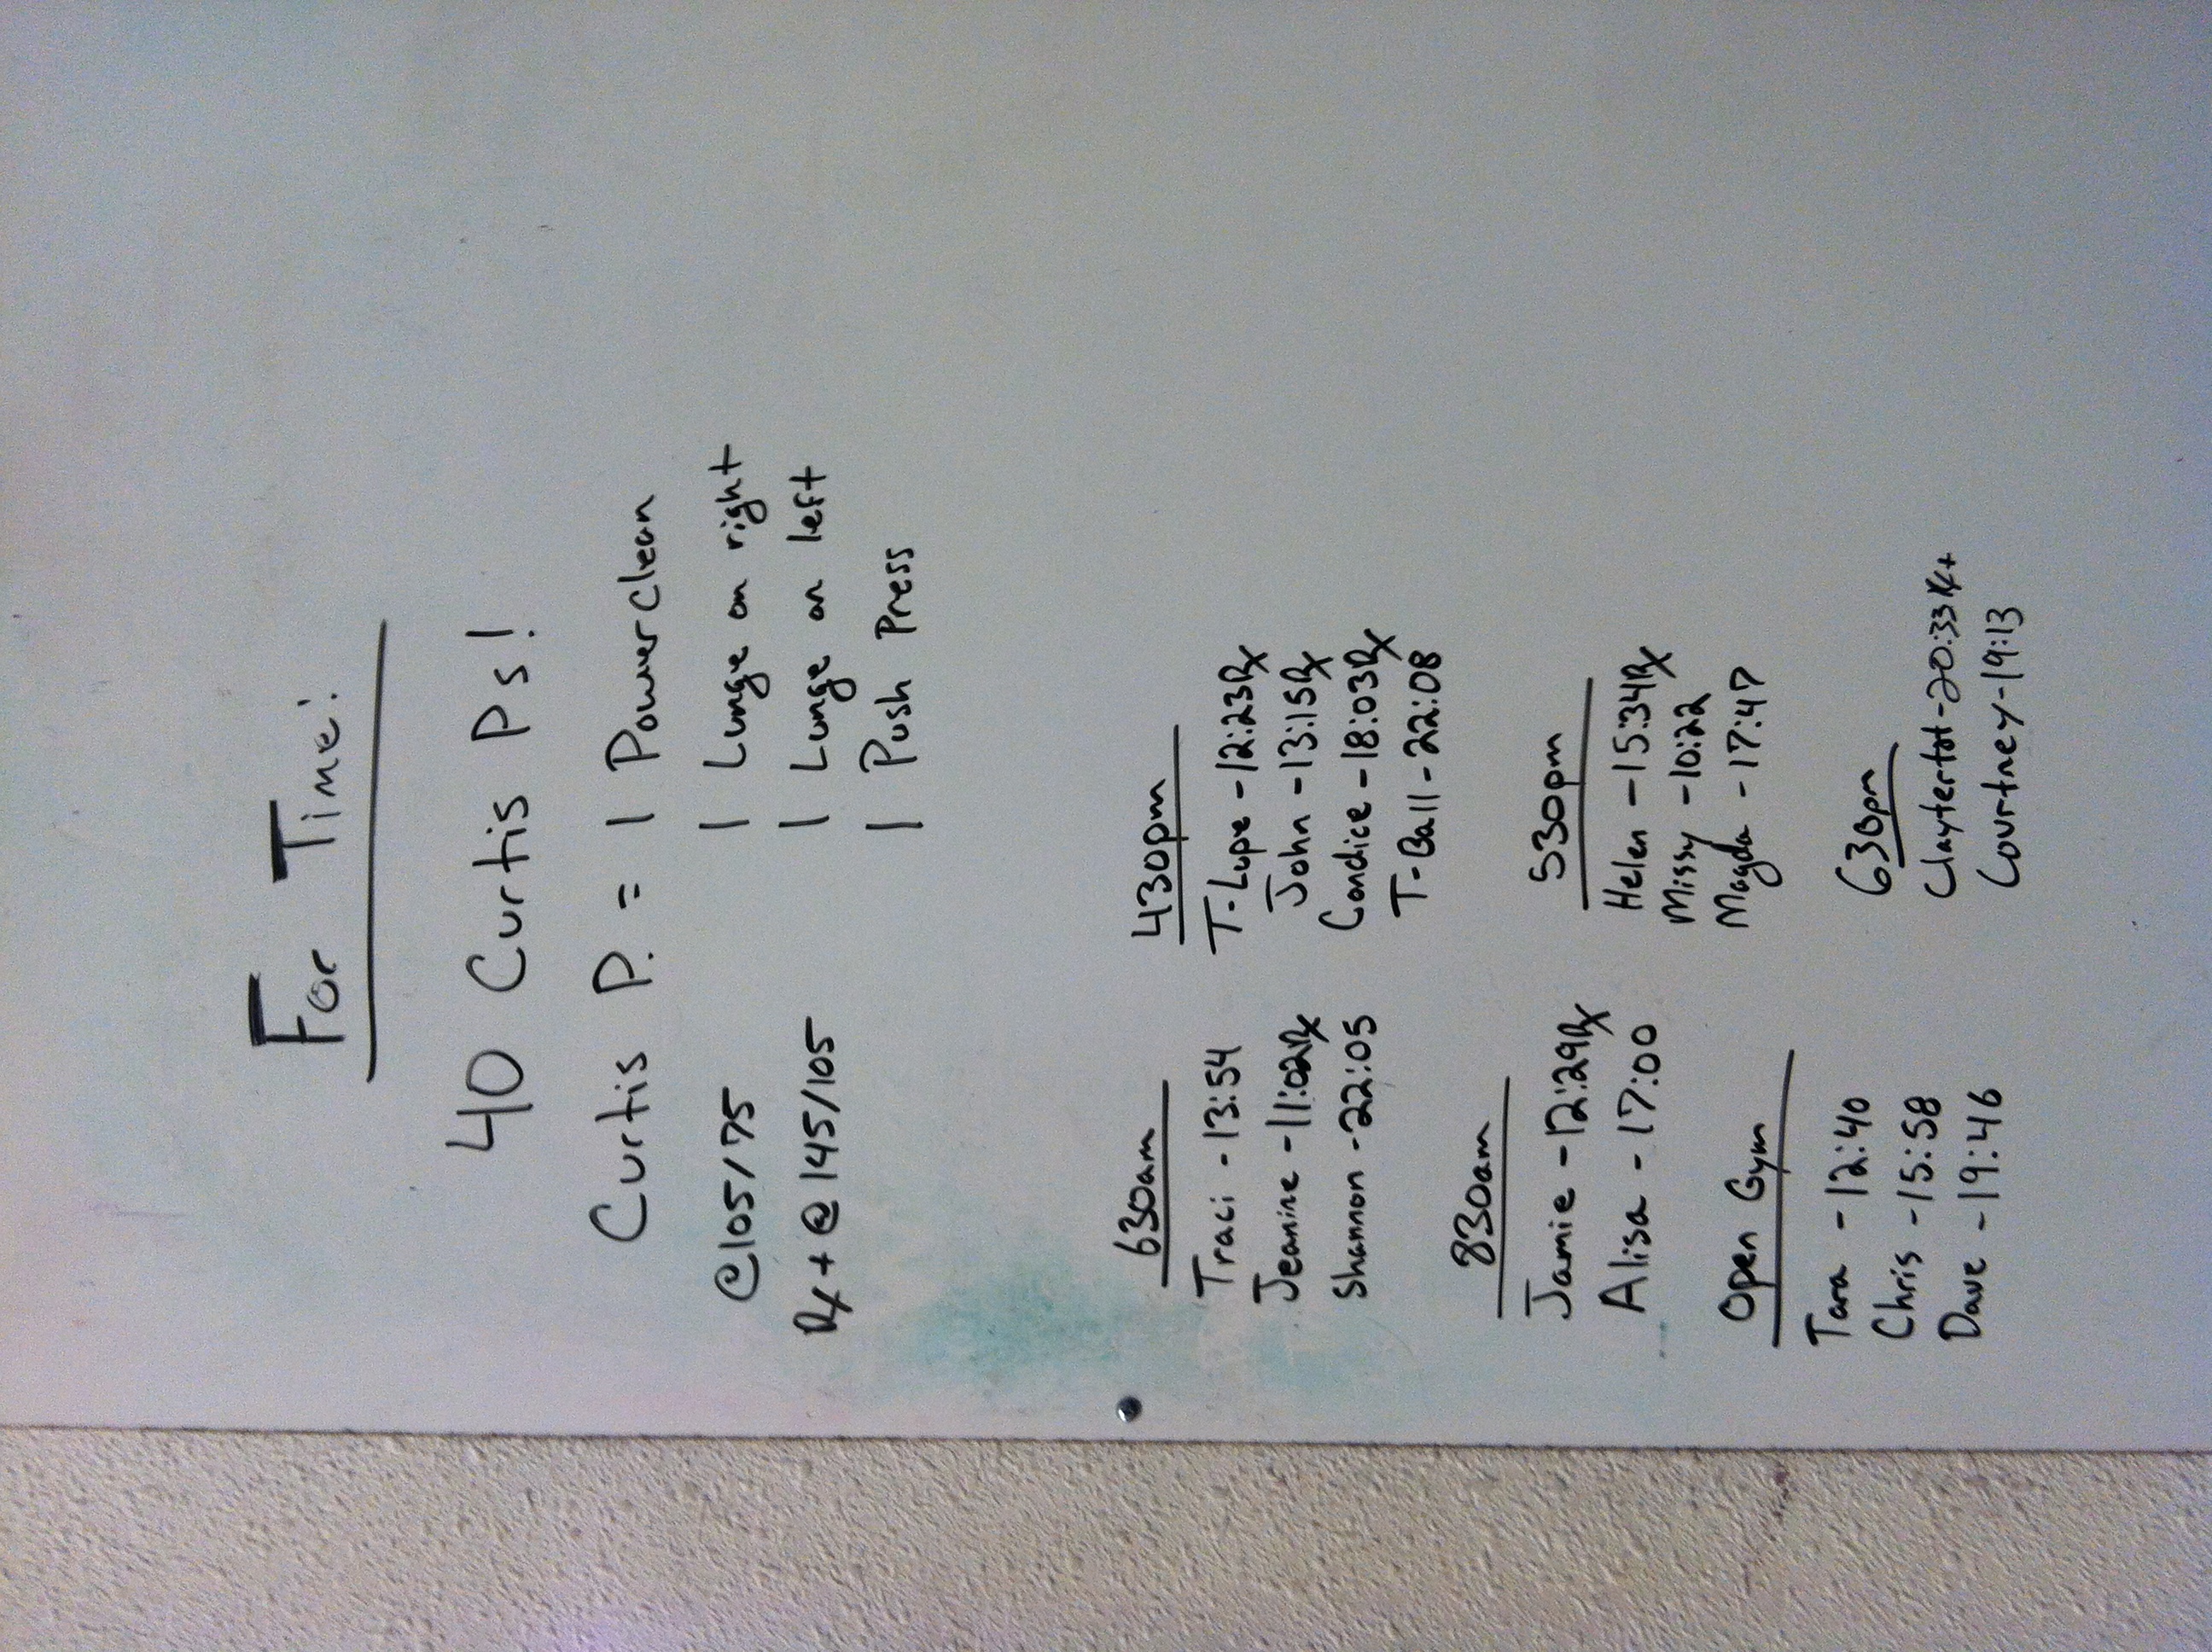 For Time:
40 Curtis Ps!
Curtis P. = 1 Power clean
@105/75 1 Lunge on right
Rx+ @ 145/105 1 Lunge on left
1 Push Press
630am
Traci - 13:54
Jeanine - 11:02Rx
Shannon - 22:05
830am
Jamie - 12:29Rx
Alisa - 17:00
Open Gym
Tara - 12:40
Chris - 15:58
Dave - 19:46
430pm
T-Lupe - 12:23Rx
John - 13:15Rx
Candice - 18:03Rx
T-Ball - 22:08
530pm
Helen - 15:34Rx
Missy - 10:22
Magda - 17:47
630pm
Claytertot - 20:33Rx+
Courtney - 19:13